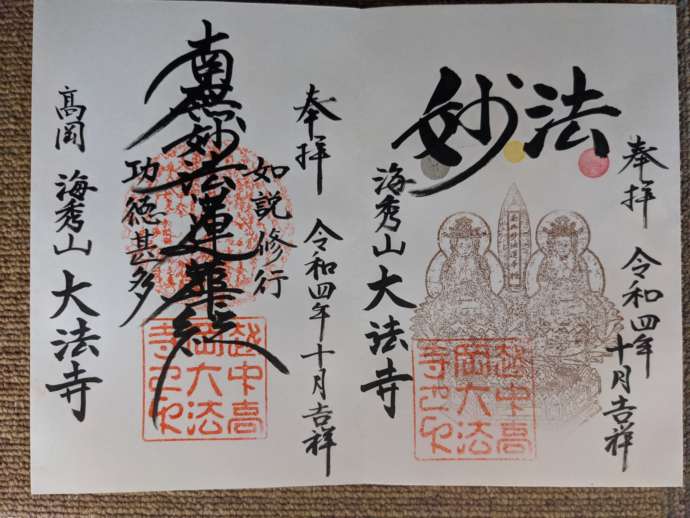 奉拝
令和四年
十月吉祥
妙法
海秀山 大法寺
越中高
岡大法
寺之印
奉拝
令和四年十月吉祥
如説修行
南無妙法蓮華経
功徳甚多
高岡 海秀山 大法寺
越中高
岡大法
寺之印